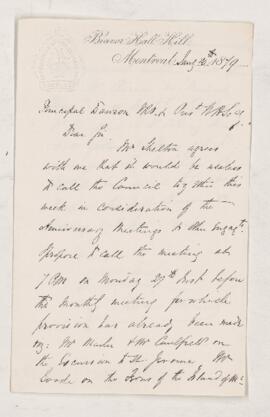 Beaver Hall Hill,
Montreal, Jany 21th 1879
Principal Dawson
Dear Sir
Mr Shelton agrees
with me that it would be useless
to call the Council together this
week in consideration of the
Anniversary Meetings & other
propose to call the meeting at
7 Pm on Monday 27th Inst before
the monthly meeting for which
provision has already been made
Mr Marler & Mr Caulfield on
the Excursion to St Jerome Mr
on the of the Island of